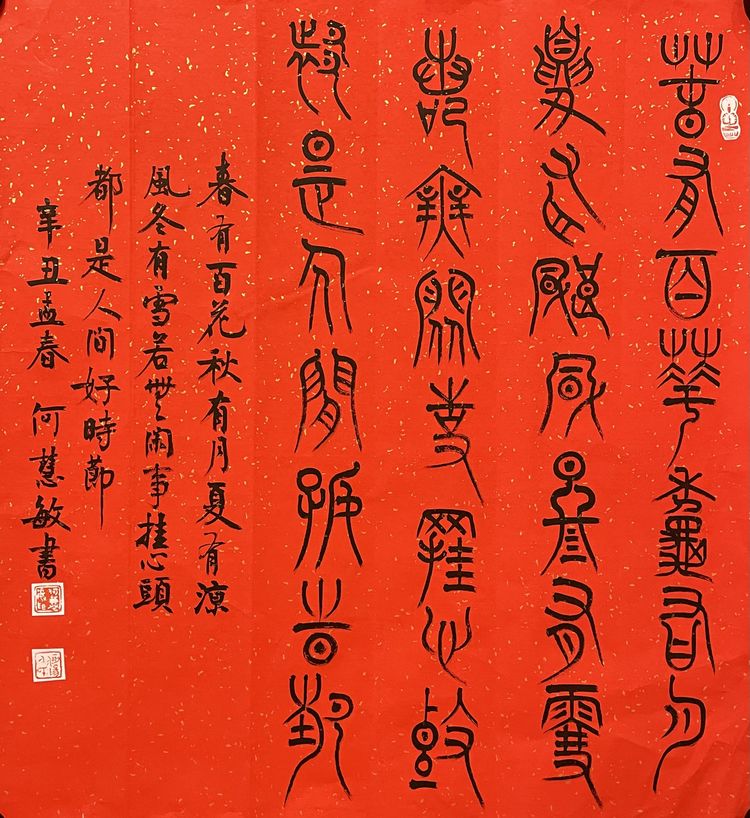 春有百華秋有月
夏有涼風冬有雪
若無閑事挂心頭
都是人間好時節
春有百花秋有月夏有涼
風冬有雪若無閑事挂心頭
都是人間好時節
辛丑孟春 何慧敏書